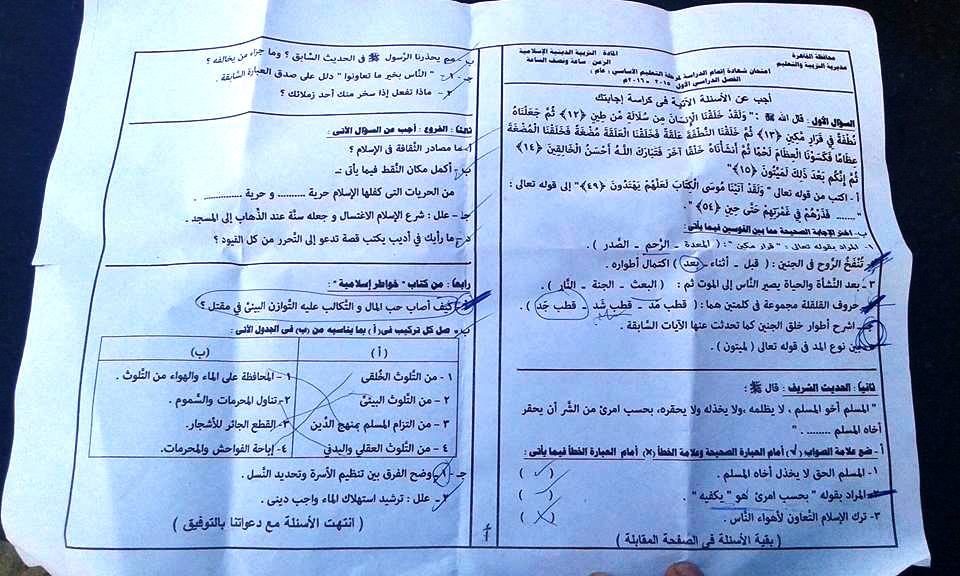 محافظة القاهرة
مديرية التربية والتعليم
المادة : التربية الدينية الإسلامية
الزمن : ساعة ونصف الساعة
امتحان شهادة إتمام الدراسة لمرحلة التعليم الأساسي ، عام :
الفصل الدراسي الأول ٢٠١٥ - ٢٠١٦م
أجب عن الأسئلة الآتية في كراسة إجابتك
السؤال الأول : قال الله ﷻ : " وَلَقَدْ خَلَقْنَا الْإِنسَانَ مِن سُلَالَةٍ مِّن طِينٍ ﴿١٢﴾ ثُمَّ جَعَلْنَاهُ
نُطْفَةً فِي قَرَارٍ مَّكِينٍ ﴿١٣﴾ ثُمَّ خَلَقْنَا النُّطْفَةَ عَلَقَةً فَخَلَقْنَا الْعَلَقَةَ مُضْغَةً فَخَلَقْنَا الْمُضْغَةَ
عِظَامًا فَكَسَوْنَا الْعِظَامَ لَحْمًا ثُمَّ أَنشَأْنَاهُ خَلْقًا آخَرَ فَتَبَارَكَ اللَّهُ أَحْسَنُ الْخَالِقِينَ ﴿١٤﴾
ثُمَّ إِنَّكُم بَعْدَ ذَلِكَ لَمَيِّتُونَ ﴿١٥﴾"
أ - اكتب من قوله تعالى " وَلَقَدْ آتَيْنَا مُوسَى الْكِتَابَ لَعَلَّهُمْ يَهْتَدُونَ ﴿٤٩﴾" إلى قوله تعالى :
"........ فَذَرْهُمْ فِي غَمْرَتِهِمْ حَتَّى حِينٍ ﴿٥٤﴾ " .
ب - اختر الإجابة الصحيحة مما بين القوسين فيما يأتى :
١- المراد بقوله تعالى : " قرار مكين " : ( المعدة - الرَّحم - الصَّدر ) .
تُنْفَخُ الرّوح في الجنين : ( قبل - أثناء - بعد ) اكتمال أطواره .
٣ - بعد النشأة والحياة يصير النَّاس إلى الموت ثم : ( البعث - الجنة - النَّار ) .
حروف القلقلة مجموعة في كلمتين هما : ( قطب مَد - قطب شَد - قطب جَد ) .
جـ - اشرح أطوار خلق الجنين كما تحدثت عنها الآيات السَّابقة .
بين نوع المد في قوله تعالى ( لميتون ) .
ثانيًا : الحديث الشريف : قال ﷺ :
" المسلم أخو المسلم ، لا يظلمه ،ولا يخذله ولا يحقره، بحسب امرئ من الشَّر أن يحقر
أخاه المسلم ........ . "
أ - ضع علامة الصواب (√) أمام العبارة الصحيحة وعلامة الخطأ (×) أمام العبارة الخطأ فيما يأتى :
١- المسلم الحق لا يخذل أخاه المسلم . ( )
المراد بقوله " بحسب امرئ هو " يكفيه " . ( )
٣- ترك الإسلام التَّعاون لأهواء النَّاس . ( )
( بقية الأسئلة في الصفحة المقابلة )
ب - مم يحذرنا الرَّسول ﷺ في الحديث السَّابق ؟ وما جزاء من يخالفه ؟
جـ - ١- " النَّاس بخير ما تعاونوا " دلل على صدق العبارة السَّابقة .
٢- ماذا تفعل إذا سخر منك أحد زملائك ؟
ثالثًا : الفروع : أجب عن السؤال الآتى :
أ - ما مصادر الثَّقافة في الإسلام ؟
ب - أكمل مكان النُّقط فيما يأتى :ـ
من الحريات التى كفلها الإسلام حرية .......... و حرية .............. .
جـ - علل : شرع الإسلام الاغتسال و جعله سنَّة عند الذَّهاب إلى المسجد .
د - ما رأيك في أديب يكتب قصة تدعو إلى التَّحرر من كل القيود ؟
رابعًا : من كتاب " خواطر إسلامية " :
كيف أصاب حب المال و التَّكالب عليه التَّوازن البيئىَّ في مقتل ؟
ب - صل كل تركيب في ( أ ) بما يناسبه من (ب) في الجدول الآتى :
( أ ) (ب)
١ - من التَّلوث الخُلقى ١ - المحافظة على الماء والهواء من التَّلوث .
٢ - من التَّلوث البيئىَّ ٢ - تناول المحرمات والسَّموم .
٣ - من التزام المسلم بمنهج الدِّين ٣- القطع الجائر للأشجار.
٤ - من التَّلوث العقلي والبدني ٤- إباحة الفواحش والمحرمات.
جـ - ١- وضح الفرق بين تنظيم الأسرة وتحديد النَّسل .
٢ - علل : ترشيد استهلاك الماء واجب دينى .
( انتهت الأسئلة مع دعواتنا بالتوفيق )